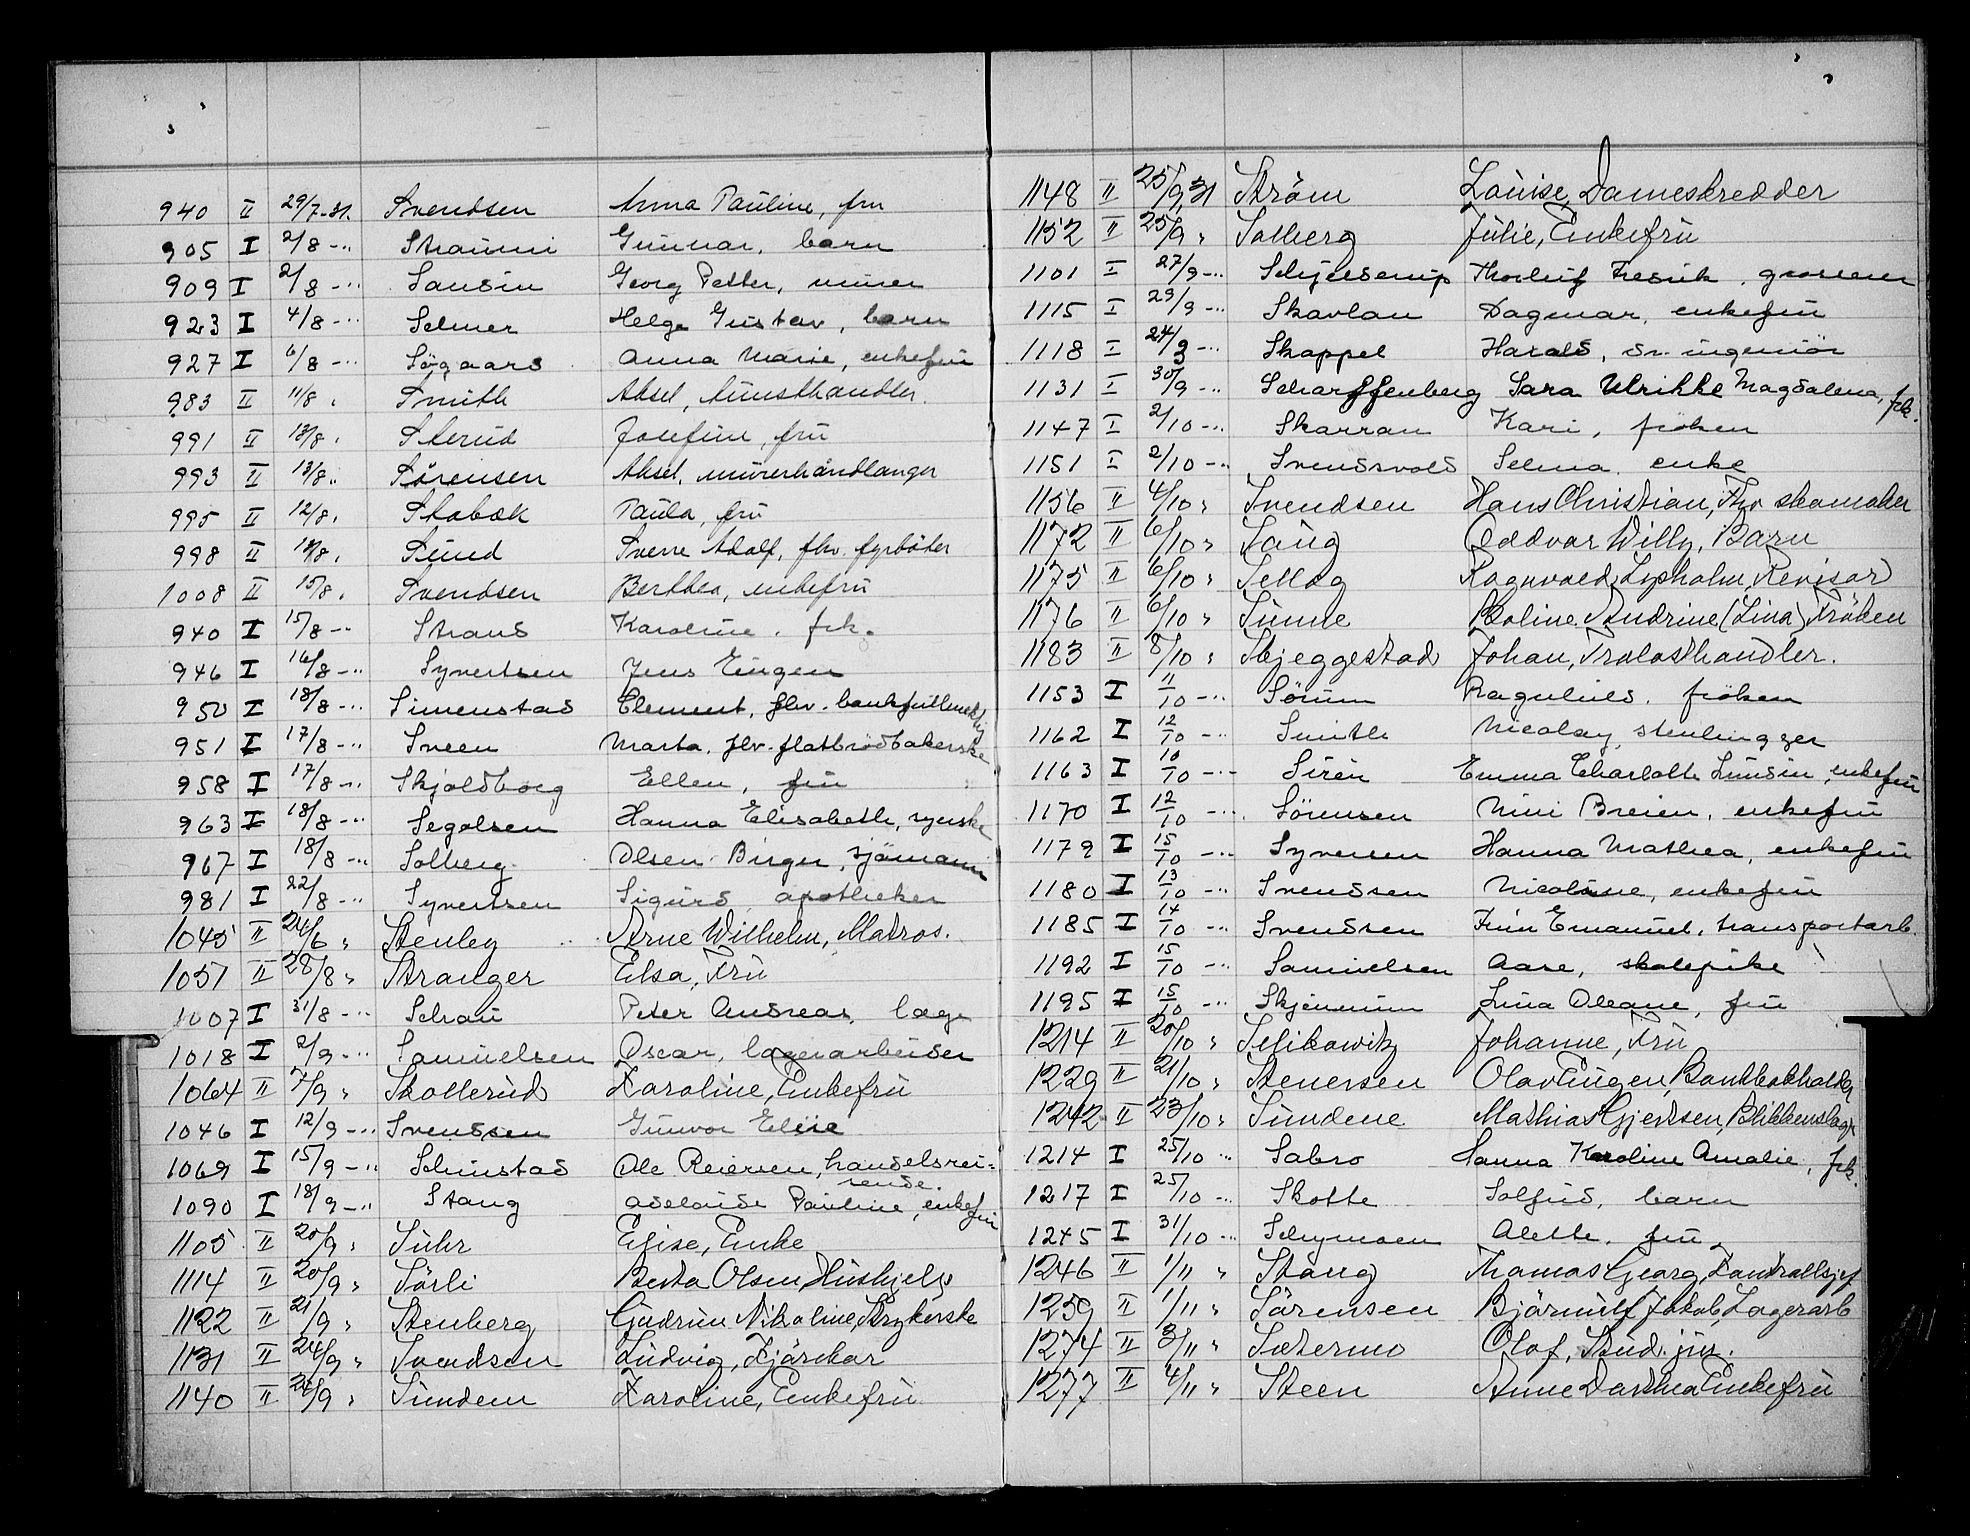 940 II 29/7-31. Svendsen Anna Pauline, fru
905 I 2/8 -"- Straumi Gunnar, barn
909 I 2/8 -"- Sausin Georg Petter, murer
923 I 4/8 -"- Selmer Helge Gustav, barn
927 I 6/8 -"- Søgaard Anna Marie, enkefru
983 II 11/8 " Smith Aksel, kunsthandler.
991 II 13/8 " Sterud Josefine, fru
993 II 13/8 " Sørensen Aksel, murerhåndlanger
995 II 12/8 " Stabæk Paula, fru
998 II 14/8 " Sund Sverre Adolf, fhv. fyrbøter
1008 II 15/8 " Svendsen Berthea, enkefru
940 I 15/8 -"- Strand Karoline, frk.
946 I 16/8 -"- Syvertsen Jens Eugen
950 I 18/8 -"- Simenstad Clement, fhv. bankfullmektig
951 I 17/8 -"- Sveen Marta, fhv. flatbrødbakerske
958 I 17/8 -"- Skjoldborg Ellen, fru
963 I 18/8 -"- Segolsen Hanna Elisabeth, syerske
967 I 18/8 -"- Solberg Olsen Birger, sjømann
981 I 22/8 -"- Syvertsen Sigurd, apotheker
1045 II 24/6 " Stenley Arne Wilhelm, Matros.
1051 II 28/8 " Stranger Elsa, Fru
1007 I 31/8 -"- Schau Peter Andreas, læge
1018 I 2/9 -"- Samuelsen Oscar, lagerarbeider
1064 II 7/9 " Skollerud Karoline, Enkefru
1046 I 12/9 -"- Svendsen Gunvor Elise
1069 I 15/9 -"- Solinstad Ole Reiersen, handelsrei=
sende.
1090 I 18/9 -"- Stang Adelaide Pauline, enkefru
1105 II 20/9 " Suhr Elise, Enke
1114 II 20/9 " Sörli Berta Olsen, Hushjelp
1122 II 21/9 " Stenberg Gudrun Nikoline, Strykerske
1131 II 24/9 " Svendsen Ludvig, Kjørekar
1140 II 24/9 " Sundem Karoline, Enkefru
1148 II 25/9 31 Ström Louise, Dameskredder
1152 II 25/9 " Solberg Julie, Enkefru
1101 I 27/9 -"- Schjelderup Thorleif Fredrik, grosserer
1115 I 29/9 -"- Skavlan Dagmar, enkefru
1118 I 24/9 -"- Skappel Harald, sr. ingeniør
1131 I 30/9 -"- Scharffenberg Sara Ulrikke Magdalena, frk.
1147 I 2/10 -"- Skarran Kari, frøken
1151 I 2/10 -"- Svendsvold Selma, enke
1156 II 4/10 " Svendsen Hans Christian, Fhv skomaker
1172 II 6/10 " Saug Oddvar Willy, Barn
1175 II 6/10 " Sellæg Ragnvald Lysholm, Revisor
1176 II 6/10 " Sunne Boline Andrine (Lina) Fröken
1183 II 8/10 " Skjeggestad Johan, Trelasthandler.
1153 I 11/10 -"- Sørum Ragnhild, frøken
1162 I 12/10 -"- Smith Nicolay, stenlugger
1163 I 10/10 -"- Sirén Emma Charlotte Lunsin, enkefru
1170 I 12/10 -"- Sørensen Nini Breien, enkefru
1179 I 15/10 -"- Syversen Hanna Mathea, enkefru
1180 I 13/10 -"- Svendsen Nicoline, enkefru
1185 I 14/10 -"- Svendsen Finn Emanuel, transportarb.
1192 I 15/10 -"- Samuelsen Aase, skolepike
1195 I 15/10 -"- Skjennum Lina Oleane, fru
1214 II 20/10 " Selikowitz Johanne, Fru
1229 II 21/10 " Stenersen Olav Eugen, Bankbokholder
1242 II 23/10 " Sundene Mathias Gjertsen, Blikkenslager
1214 I 25/10 " Sabro Hanna Karoline Amalie, frk.
1217 I 25/10 -"- Skotte Solfrid, barn
1245 I 31/10 -"- Schymoen Alette, fru
1246 II 1/11 " Stang Thomas Georg, Kontrollsjef
1259 II 1/11 " Sörensen Bjørnulf Jakob, Lagerarb
1274 II 3/11 " Sætermo Olaf, Stud. jur.
1277 II 4/11 " Steen Anne Dorthea Enkefru